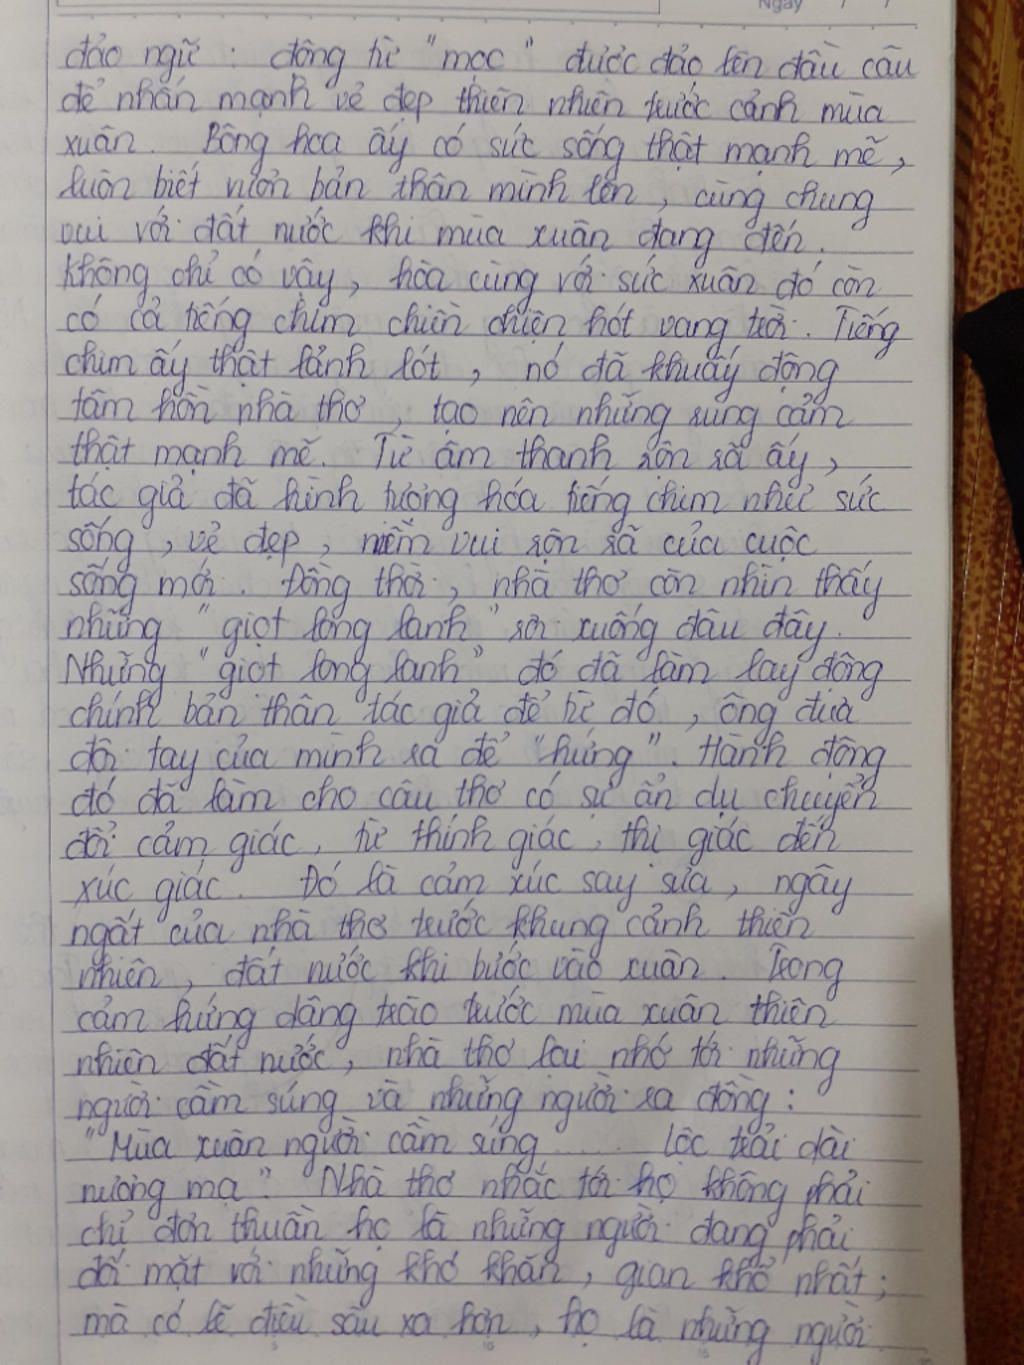 Ngày / /
đảo ngữ : động từ "mọc" được đảo lên đầu câu
để nhấn mạnh vẻ đẹp thiên nhiên trước cảnh mùa
xuân. Bông hoa ấy có sức sống thật mạnh mẽ,
luôn biết vươn bản thân mình lên, cùng chung
vui với đất nước khi mùa xuân đang đến.
Không chỉ có vậy, hòa cùng với sức xuân đó còn
có cả tiếng chim chiền chiện hót vang trời. Tiếng
chim ấy thật lảnh lót, nó đã khuấy động
tâm hồn nhà thơ, tạo nên những rung cảm
thật mạnh mẽ. Từ âm thanh rộn rã ấy,
tác giả đã hình tượng hóa tiếng chim như sức
sống, vẻ đẹp, niềm vui rộn rã của cuộc
sống mới. Đồng thời, nhà thơ còn nhìn thấy
những "giọt long lanh" rơi xuống đâu đây.
Những "giọt long lanh" đó đã làm lay động
chính bản thân tác giả để từ đó, ông đưa
đôi tay của mình ra để "hứng". Hành động
đó đã làm cho câu thơ có sự ẩn dụ chuyển
đổi cảm giác, từ thính giác, thị giác đến
xúc giác. Đó là cảm xúc say sưa, ngây
ngất của nhà thơ trước khung cảnh thiên
nhiên, đất nước khi bước vào xuân. Trong
cảm hứng dâng trào trước mùa xuân thiên
nhiên đất nước, nhà thơ lại nhớ tới những
người cầm súng và những người ra đồng:
"Mùa xuân người cầm súng ...... Lộc trải dài
nương mạ" Nhà thơ nhắc tới họ không phải
chỉ đơn thuần họ là những người đang phải
đối mặt với những khó khăn, gian khổ nhất;
mà có lẽ điều sâu xa hơn, họ là những người